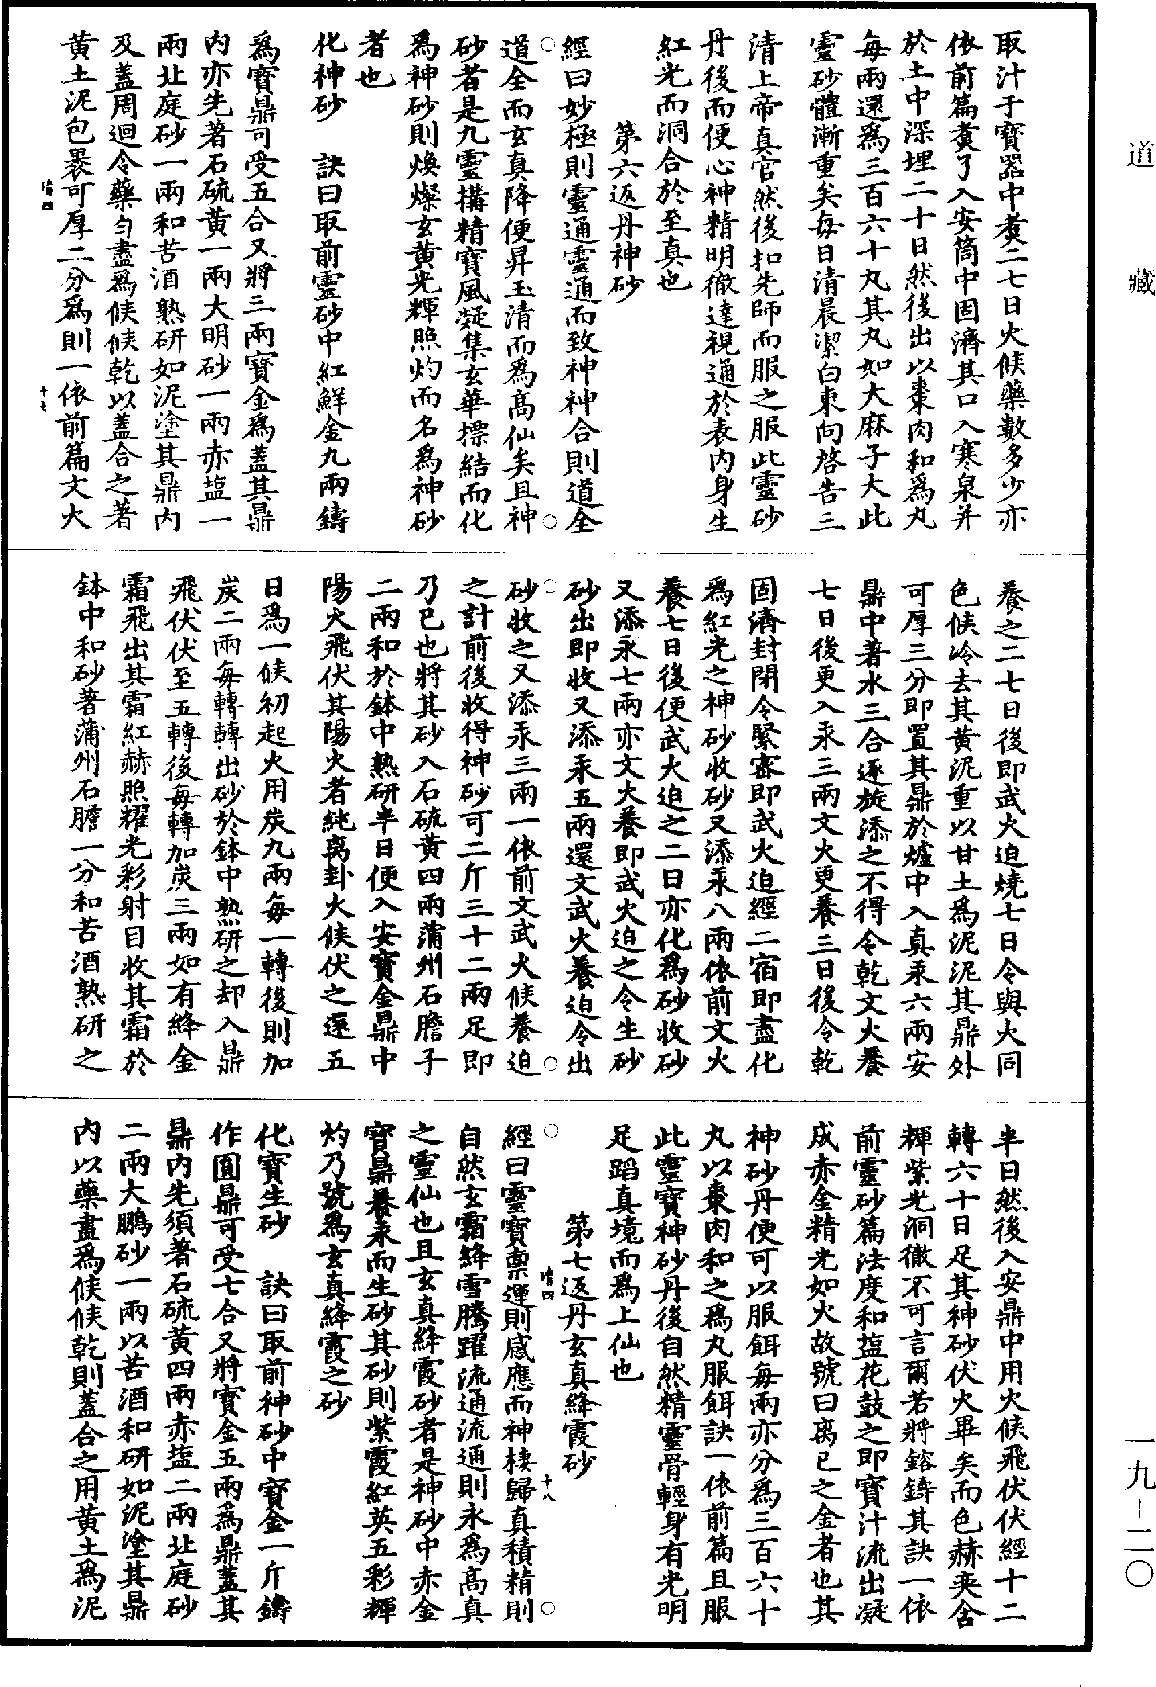 道藏
取汁于寶器中煑二七日火候藥數多少亦
依前篇煑了入安筒中固濟其口入寒泉并
於土中深埋二十日然後出以棗肉和爲丸
每兩還爲三百六十丸其丸如大麻子大此
靈砂體漸重矣每日清晨潔白東向啓告三
清上帝真官然後扣先師而服之服此靈砂
丹後而便心神精明徹達視通於表内身生
紅光而洞合於至真也
第六返丹神砂
經曰妙極則靈通靈通而致神神合則道全
道全而玄真降便昇玉清而爲高仙矣且神
砂者是九靈搆精寶風凝集玄華摽結而化
爲神砂則煥燦玄黄光輝照灼而名爲神砂
者也
化神砂 訣曰取前靈砂中紅鮮金九兩鑄
爲寶鼎可受五合又將三兩寶金爲蓋其鼎
内亦先著石硫黄一兩大明砂一兩赤塩一
兩北庭砂一兩和苦酒熟研如泥塗其鼎内
及蓋周迴令藥勻盡爲候候乾以蓋合之著
黄土泥包裹可厚二分爲則一依前篇文火
十七
養之二七日後即武火迫燒七日令與火同
色候冷去其黄泥重以甘土爲泥泥其鼎外
可厚三分即置其鼎於爐中入真汞六兩安
鼎中著水三合逐旋添之不得令乾文火養
七日後更入汞三兩文火更養三日後令乾
固濟封閉令緊審即武火迫經二宿即盡化
爲紅光之神砂收砂又添汞八兩依前文火
養七日後便武火迫之二日亦化爲砂收砂
又添汞七兩亦文火養即武火迫之令生砂
砂出即收又添汞五兩還文武火養迫令出
砂收之又添汞三兩一依前文武火候養迫
之計前後收得神砂可二斤三十二兩足即
乃已也將其砂入石硫黄四兩蒲州石膽子
二兩和於鉢中熟研半日便入安寶金鼎中
陽火飛伏其陽火者純离卦火候伏之逐五
日爲一候初起火用炭九兩每一轉後則加
炭二兩每轉轉出砂於鉢中熟研之却入鼎
飛伏伏至五轉後每轉加炭三兩如有絳金
霜飛出其霜紅赫照耀光彩射目收其霜於
鉢中和砂著蒲州石膽一分和苦酒熟研之
半日然後入安鼎中用火候飛伏伏經十二
轉六十日足其神砂伏火畢矣而色赫奕含
輝紫光洞徹不可言爾若將鎔鑄其訣一依
前靈砂篇法度和塩花鼓之即寶汁流出凝
成赤金精光如火故號曰离己之金者也其
神砂丹便可以服餌每兩亦分爲三百六十
丸以棗肉和之爲丸服餌訣一依前篇且服
此靈寶神砂丹後自然精靈骨輕身有光明
足蹈真境而爲上仙也
第七返丹玄真絳霞砂
十八
經曰靈寶稟運則感應而神棲歸真積精則
自然玄霜絳雪騰躍流通流通則永爲高真
之靈仙也且玄真絳霞砂者是神砂中赤金
寶鼎養汞而生砂其砂則紫霞紅英五彩輝
灼乃號爲玄真絳霞之砂
化寶生砂 訣曰取前神砂中寶金一斤鑄
作圓鼎可受七合又將寶金五兩爲鼎蓋其
鼎内先須著石硫黄四兩赤塩二兩北庭砂
二兩大鵬砂一兩以苦酒和研如泥塗其鼎
内以藥盡爲候候乾則蓋合之用黄土爲泥
一九－二〇